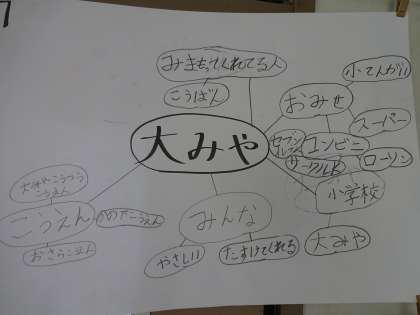 7
みまもってくれてる人
こうばん
小てんがい
おみせ
スーパー
大みや
セブン
イレブン
コンビニ
サークルK
ローソン
小学校
大みや
みんな
やさしい
たすけてくれる
大みやこうつう
こうえん
こうえん
おさらこうえん